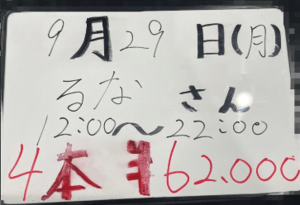 9月29日(月)
るなさん
12:00〜22:00
4本半62.000